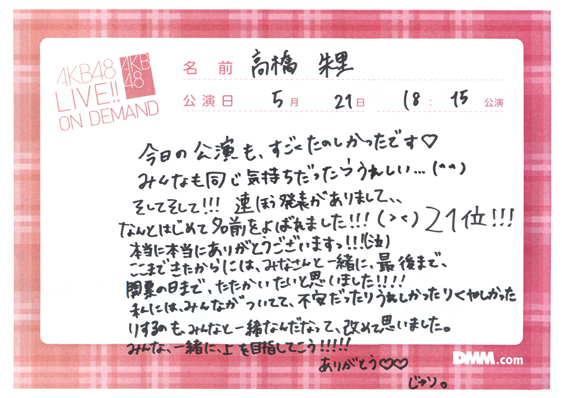 AKB48
LIVE!!
ON DEMAND
AKB
48
名前 高橋 朱里
公演日 5月 21日 18:15 公演
今日の公演も、すごくたのしかったです♡
みんなも同じ気持ちだったらうれしい…(^^)
そしてそして!!! 速ほう発表がありまして、、
なんとはじめて名前をよばれました!!!(><)21位!!!
本当に本当にありがとうございますっ!!!(泣)
ここまできたからには、みなさんと一緒に、最後まで、
開票の日まで、たたかいたいと思いました!!!!
私には、みんながついてて、不安だったりうれしかったりくやしかった
りするのも、みんなと一緒なんだなって、改めて思いました。
みんな、一緒に、上を目指してこう!!!!!
ありがとう♡♡
じゅり。
DMM.com